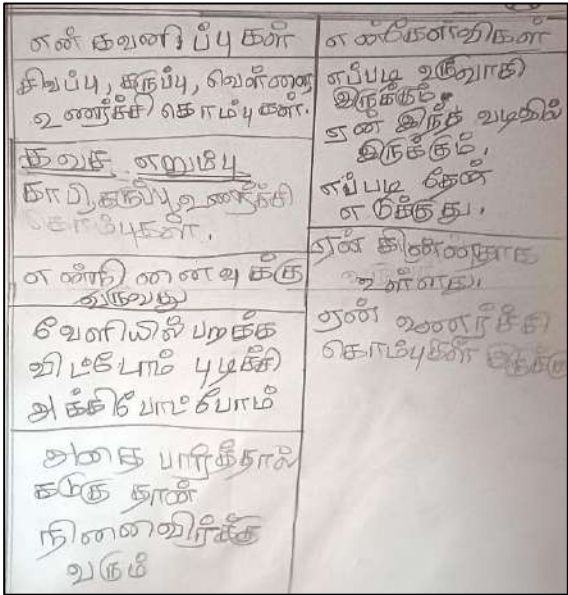 என் கவனிப்புகள்
சிவப்பு, கருப்பு, வெள்ளை
உணர்ச்சி கொம்புகள்.
கவச எறும்பு
காபி, கருப்பு, உணர்ச்சி
கொம்புகள்.
என் நினைவுக்கு
வருவது
வேளியில் பறக்க
விட்டோம் புடிச்சி
அக்கிபோட்போம்
அதை பார்த்தால்
கடுகு தான்
நினைவிர்க்கு
வரும்
என் கேள்விகள்
எப்படி உருவாகி
இருக்கும்.
ஏன் இந்த வடிகில்
இருக்கும்.
எப்படி தேன்
எடுக்குது.
ஏன் சின்னதாக
உள்ளது.
ஏன் உணர்ச்சி
கொம்புகள் இருக்கு